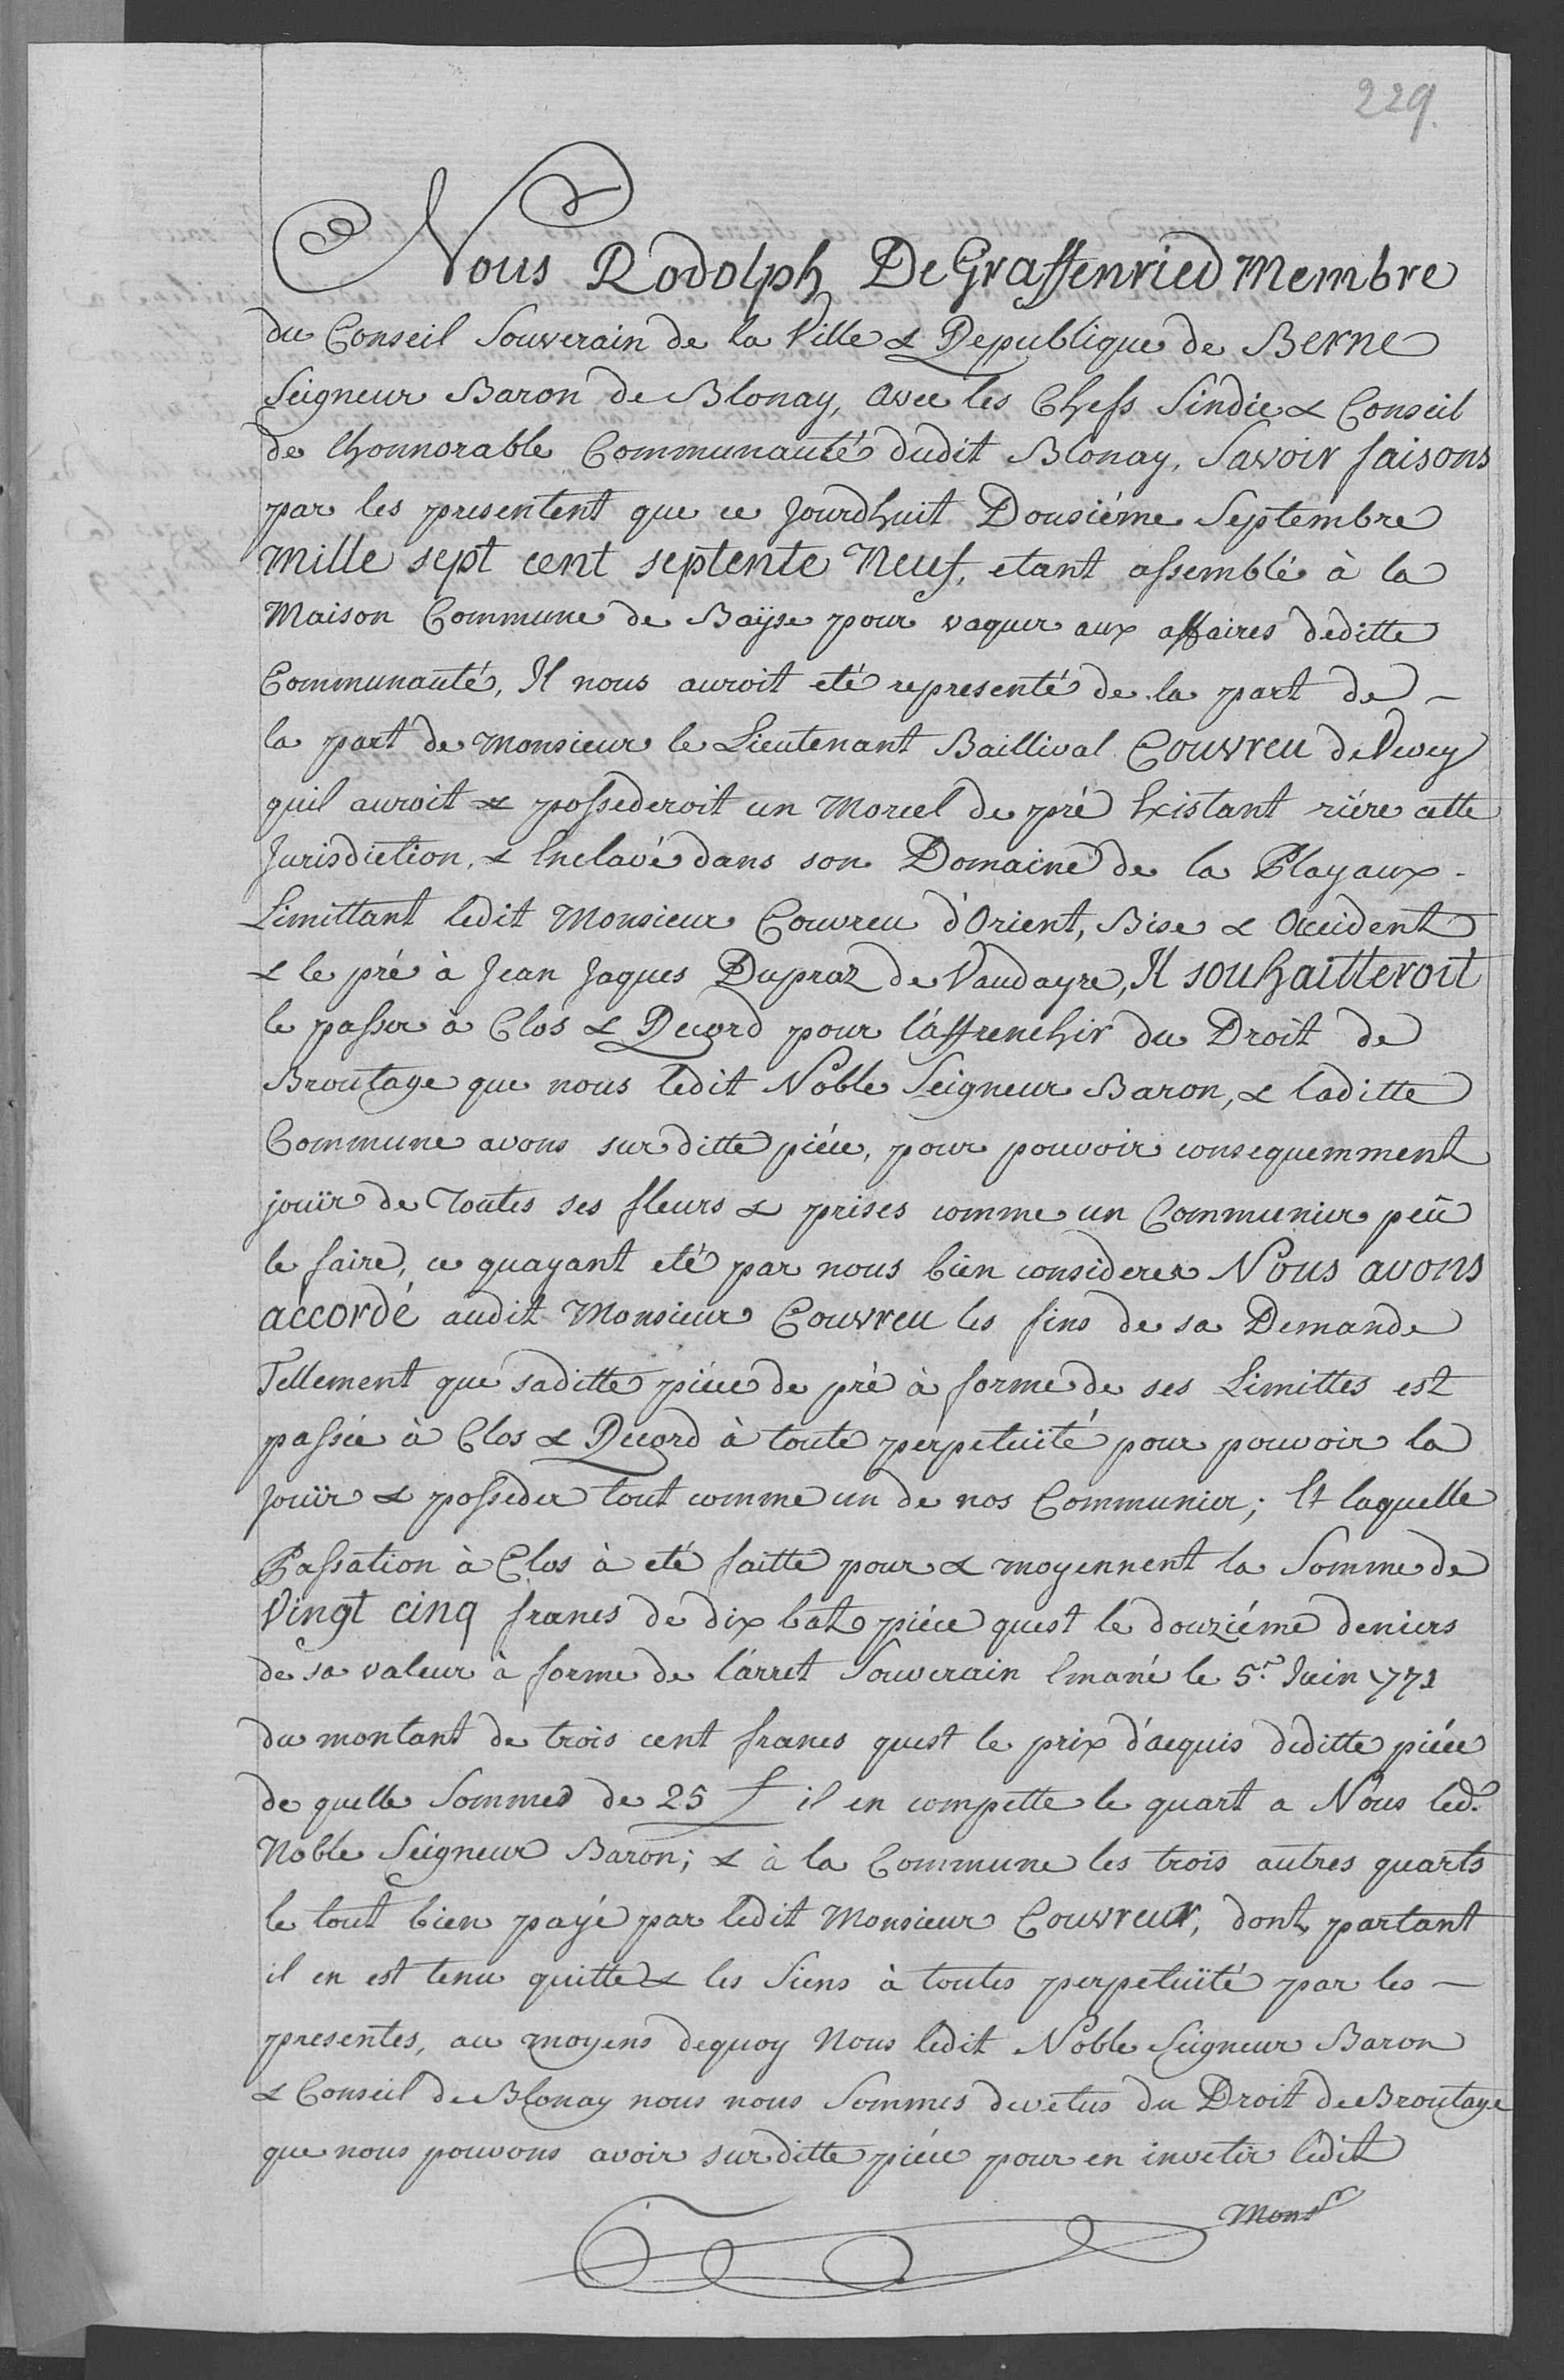 229.
Nous Rodolph De Graffenried Membre
du Conseil Souverain de la Ville & Republique de Berne
Seigneur Baron de Blonay, avec les Chefs Sindic & Conseil
de lhonnorable Communauté dudit Blonay, Savoir faisons
par les presentent que ce jourdhuit Dousiéme Septembre
mille sept cent septente Neuf, etant assemblé à la
Maison Commune de Bayse pour vaquer aux affaires deditte
Communauté, Il nous auroit eté representé de la part de –
la part de Monsieur le Lieutenant Baillival Couvreu de Vevey
quil auroit & possederoit un Morcel de pré Existant riére cette
Jurisdiction, & Enclavé dans son Domaine de la Playaux.
Limittant ledit Monsieur Couvreu d'Orient, Bise & Occident
& le pré à Jean Jaques Dupraz de Vaudayre, Il souhaitteroit
le passer à Clos & Record pour l'affrenchir du Droit de
Broutage que nous ledit Noble Seigneur Baron, & laditte
Commune avons sur ditte piéce, pour pouvoir consequemment
jouïr de Toutes ses fleurs & prises comme un Communier peû
le faire, ce quayant eté par nous bien considerer Nous avons
accordé audit Monsieur Couvreu les fins de sa Demande
Tellement que saditte piéce de pré à forme de ses Limittes est
passée à Clos & Record à toute perpetuïté pour pouvoir la
Jouïr & posseder tout comme un de nos Communier; Et laquelle
Passation à Clos à eté faitte pour & moyennent la Somme de
Vingt cinq francs de dix batz piéce quest le douziéme deniers
de sa valeur à forme de l'arret Souverain Emané le 5.e Juin 1771
du montant de trois cent francs quest le prix d'acquis deditte piéce
de quelle Sommes de 25 f il en compette le quart a Nous led.
Noble Seigneur Baron; & à la Commune les trois autres quarts
le tout bien payé par ledit Monsieur Couvreux, dont, partant
il en est tenu quitte & les Siens à toutes perpetuïté par les –
presentes, au moyens dequoy Nous ledit Noble Seigneur Baron
& Conseil de Blonay nous nous Sommes devetus du Droit de Broutage
que nous pouvons avoir sur ditte piéce pour en invetir ledit
Monsr